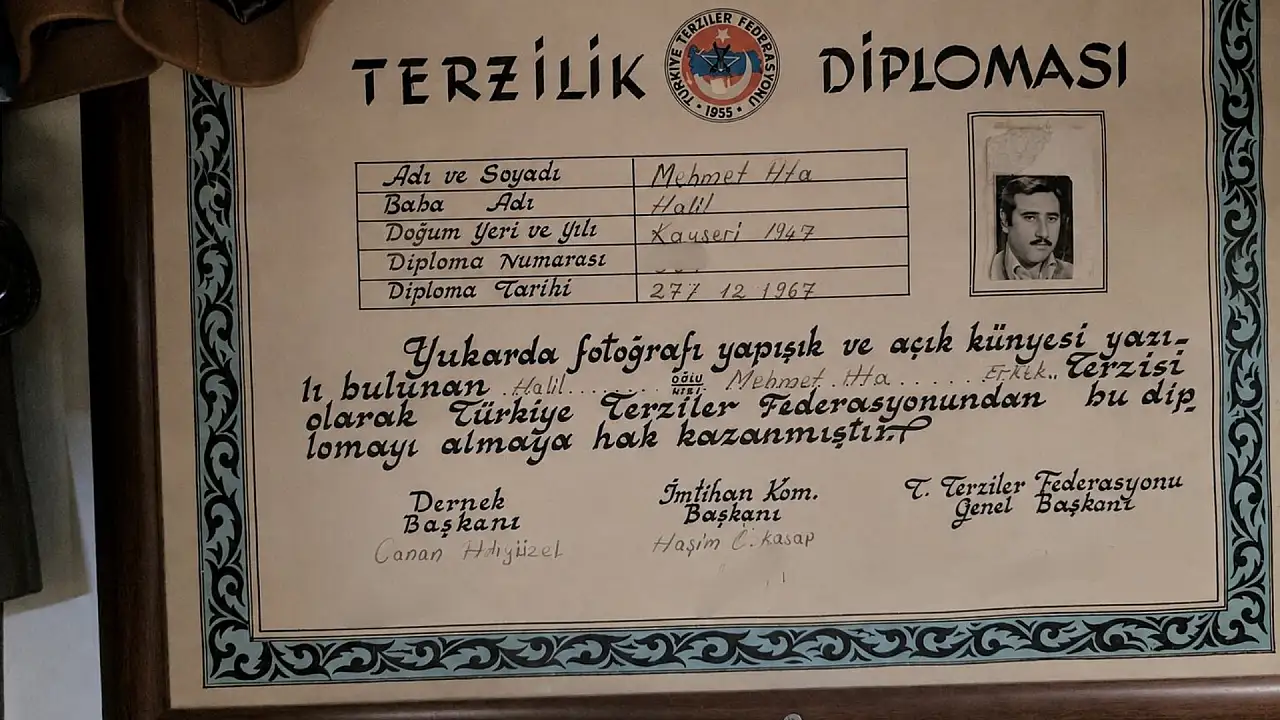 TERZİLİK DİPLOMASI
TÜRKİYE TERZİLER FEDERASYONU
1955
Adı ve Soyadı Mehmet Ata
Baba Adı Halil
Doğum Yeri ve Yılı Kayseri 1947
Diploma Numarası
Diploma Tarihi 12 1967
Yukarda fotoğrafı yapışık ve açık künyesi yazı-
lı bulunan Halil oğlu Mehmet Ata Erkek Terzisi
olarak Türkiye Terziler Federasyonundan bu dip-
lomayı almaya hak kazanmıştır.
Dernek
Başkanı
Canan
İmtihan Kom.
Başkanı
Haşim Ö. Kasap
T. Terziler Federasyonu
Genel Başkanı